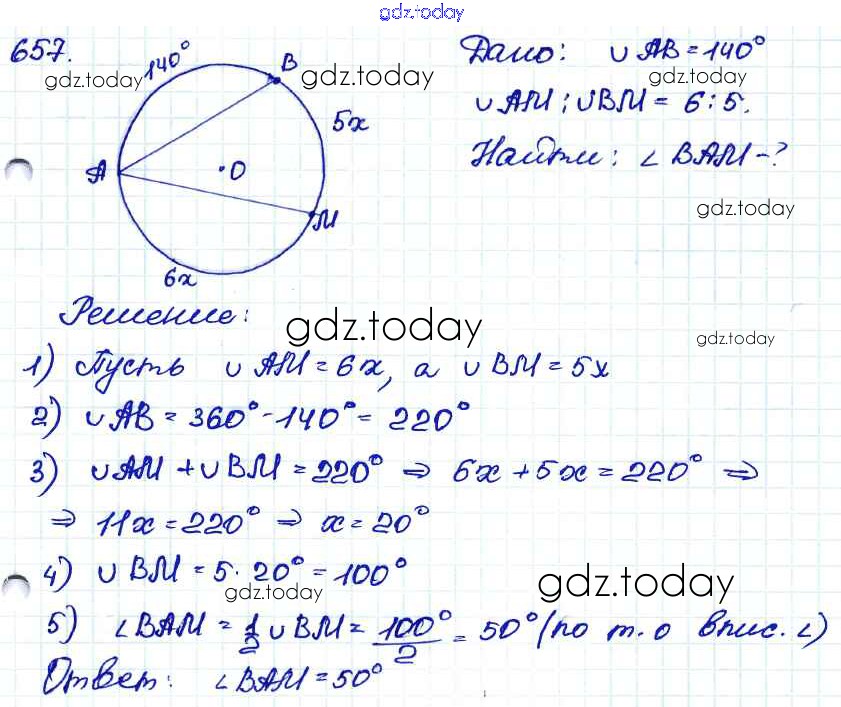 gdz.today
657.
140°
B
gdz.today
gdz.today
5x
A
O
M
6x
Дано: ∪ AB = 140°
gdz.today
∪ AM : ∪ BM = 6 : 5.
Найти: ∠ BAM - ?
gdz.today
Решение:
gdz.today
gdz.today
1) Пусть ∪ AM = 6x, а ∪ BM = 5x
2) ∪ AB = 360° - 140° = 220°
3) ∪ AM + ∪ BM = 220° ⇒ 6x + 5x = 220° ⇒
⇒ 11x = 220° ⇒ x = 20°
4) ∪ BM = 5 · 20° = 100°
gdz.today
gdz.today
5) ∠BAM = 1/2 ∪ BM = 100°/2 = 50° (по т. о впис. ∠)
Ответ: ∠BAM = 50°